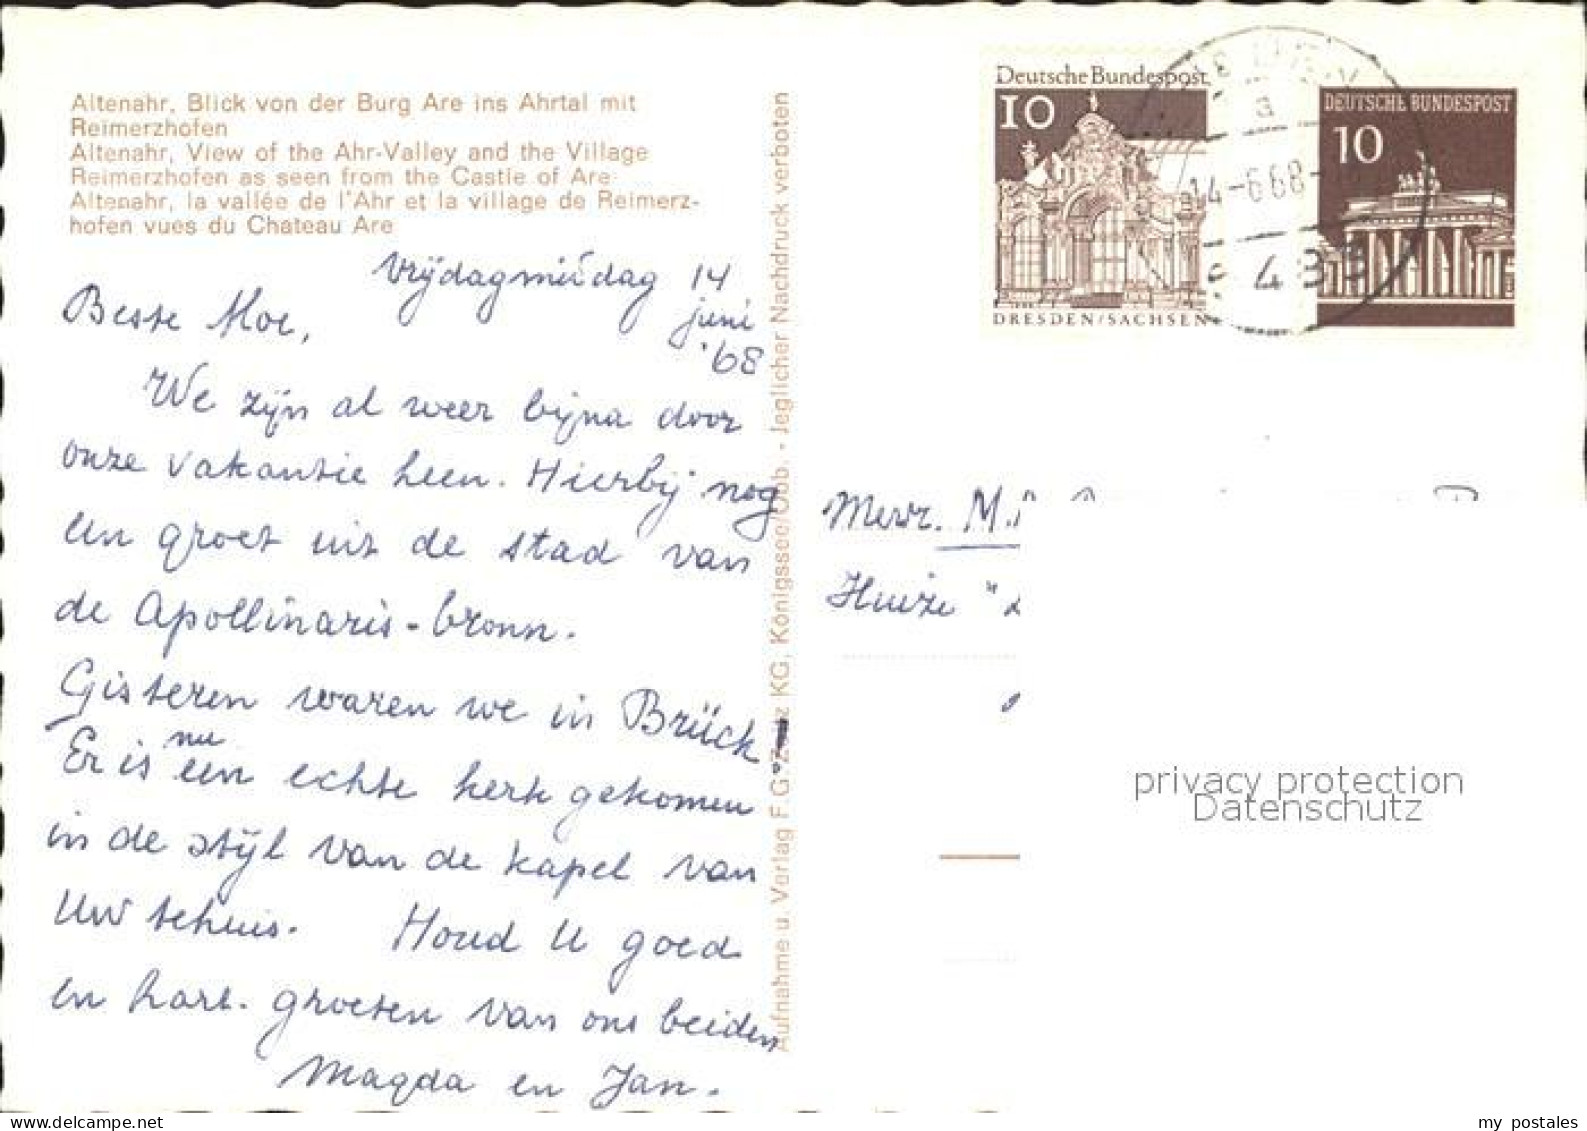 Altenahr, Blick von der Burg Are ins Ahrtal mit
Reimerzhofen
Altenahr, View of the Ahr-Valley and the Village
Reimerzhofen as seen from the Castle of Are
Altenahr, la vallée de l'Ahr et la village de Reimerz-
hofen vues du Chateau Are
vrijdagmiddag 14
juni
'68
Beste Moe,
We zijn al weer bijna door
onze vakantie heen. Hierbij nog
een groet uit de stad van
de Apollinaris-bronn.
Gisteren waren we in Brück!
Er is nu een echte kerk gekomen
in de stijl van de kapel van
Uw tehuis. Houd U goed
en hart. groeten van ons beiden
Magda en Jan.
Aufnahme u. Verlag F. G. Zeitz KG, Königssee/Obb. - Jeglicher Nachdruck verboten
Deutsche Bundespost
10
DRESDEN/SACHSEN
DEUTSCHE BUNDESPOST
10
a
14-6.68-
483
Mevr. M.
Huize "
privacy protection
Datenschutz
my postales
www.delcampe.net